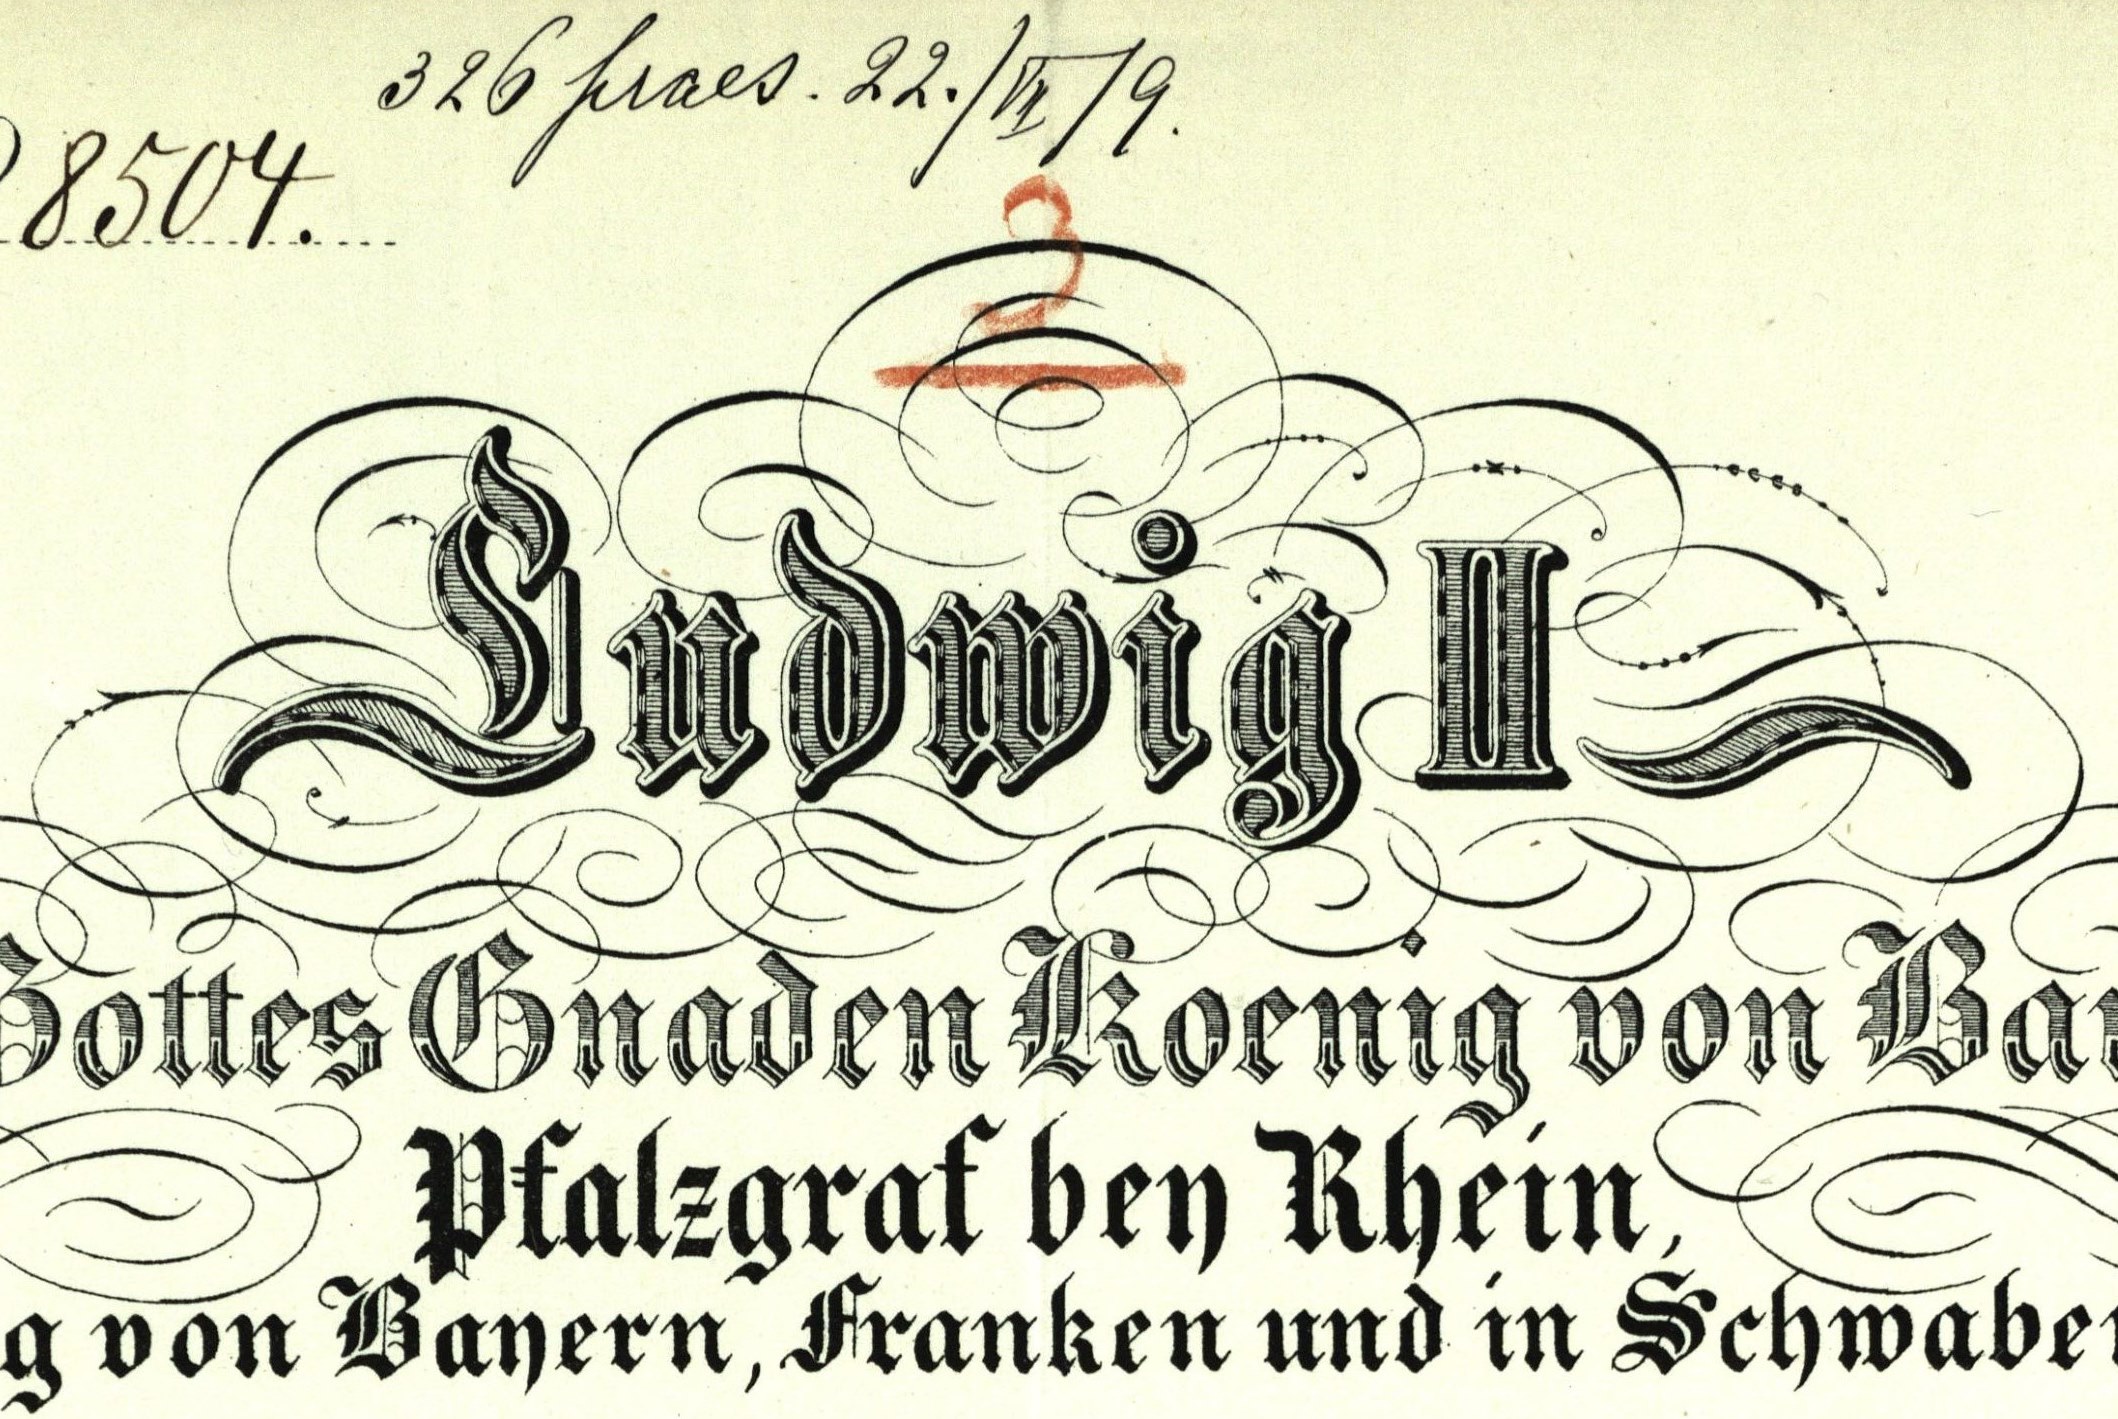 326 praes. 22./VI/79.
8504.
2
Ludwig II
Gottes Gnaden Koenig von Bay
Pfalzgraf bey Rhein,
g von Bayern, Franken und in Schwaben